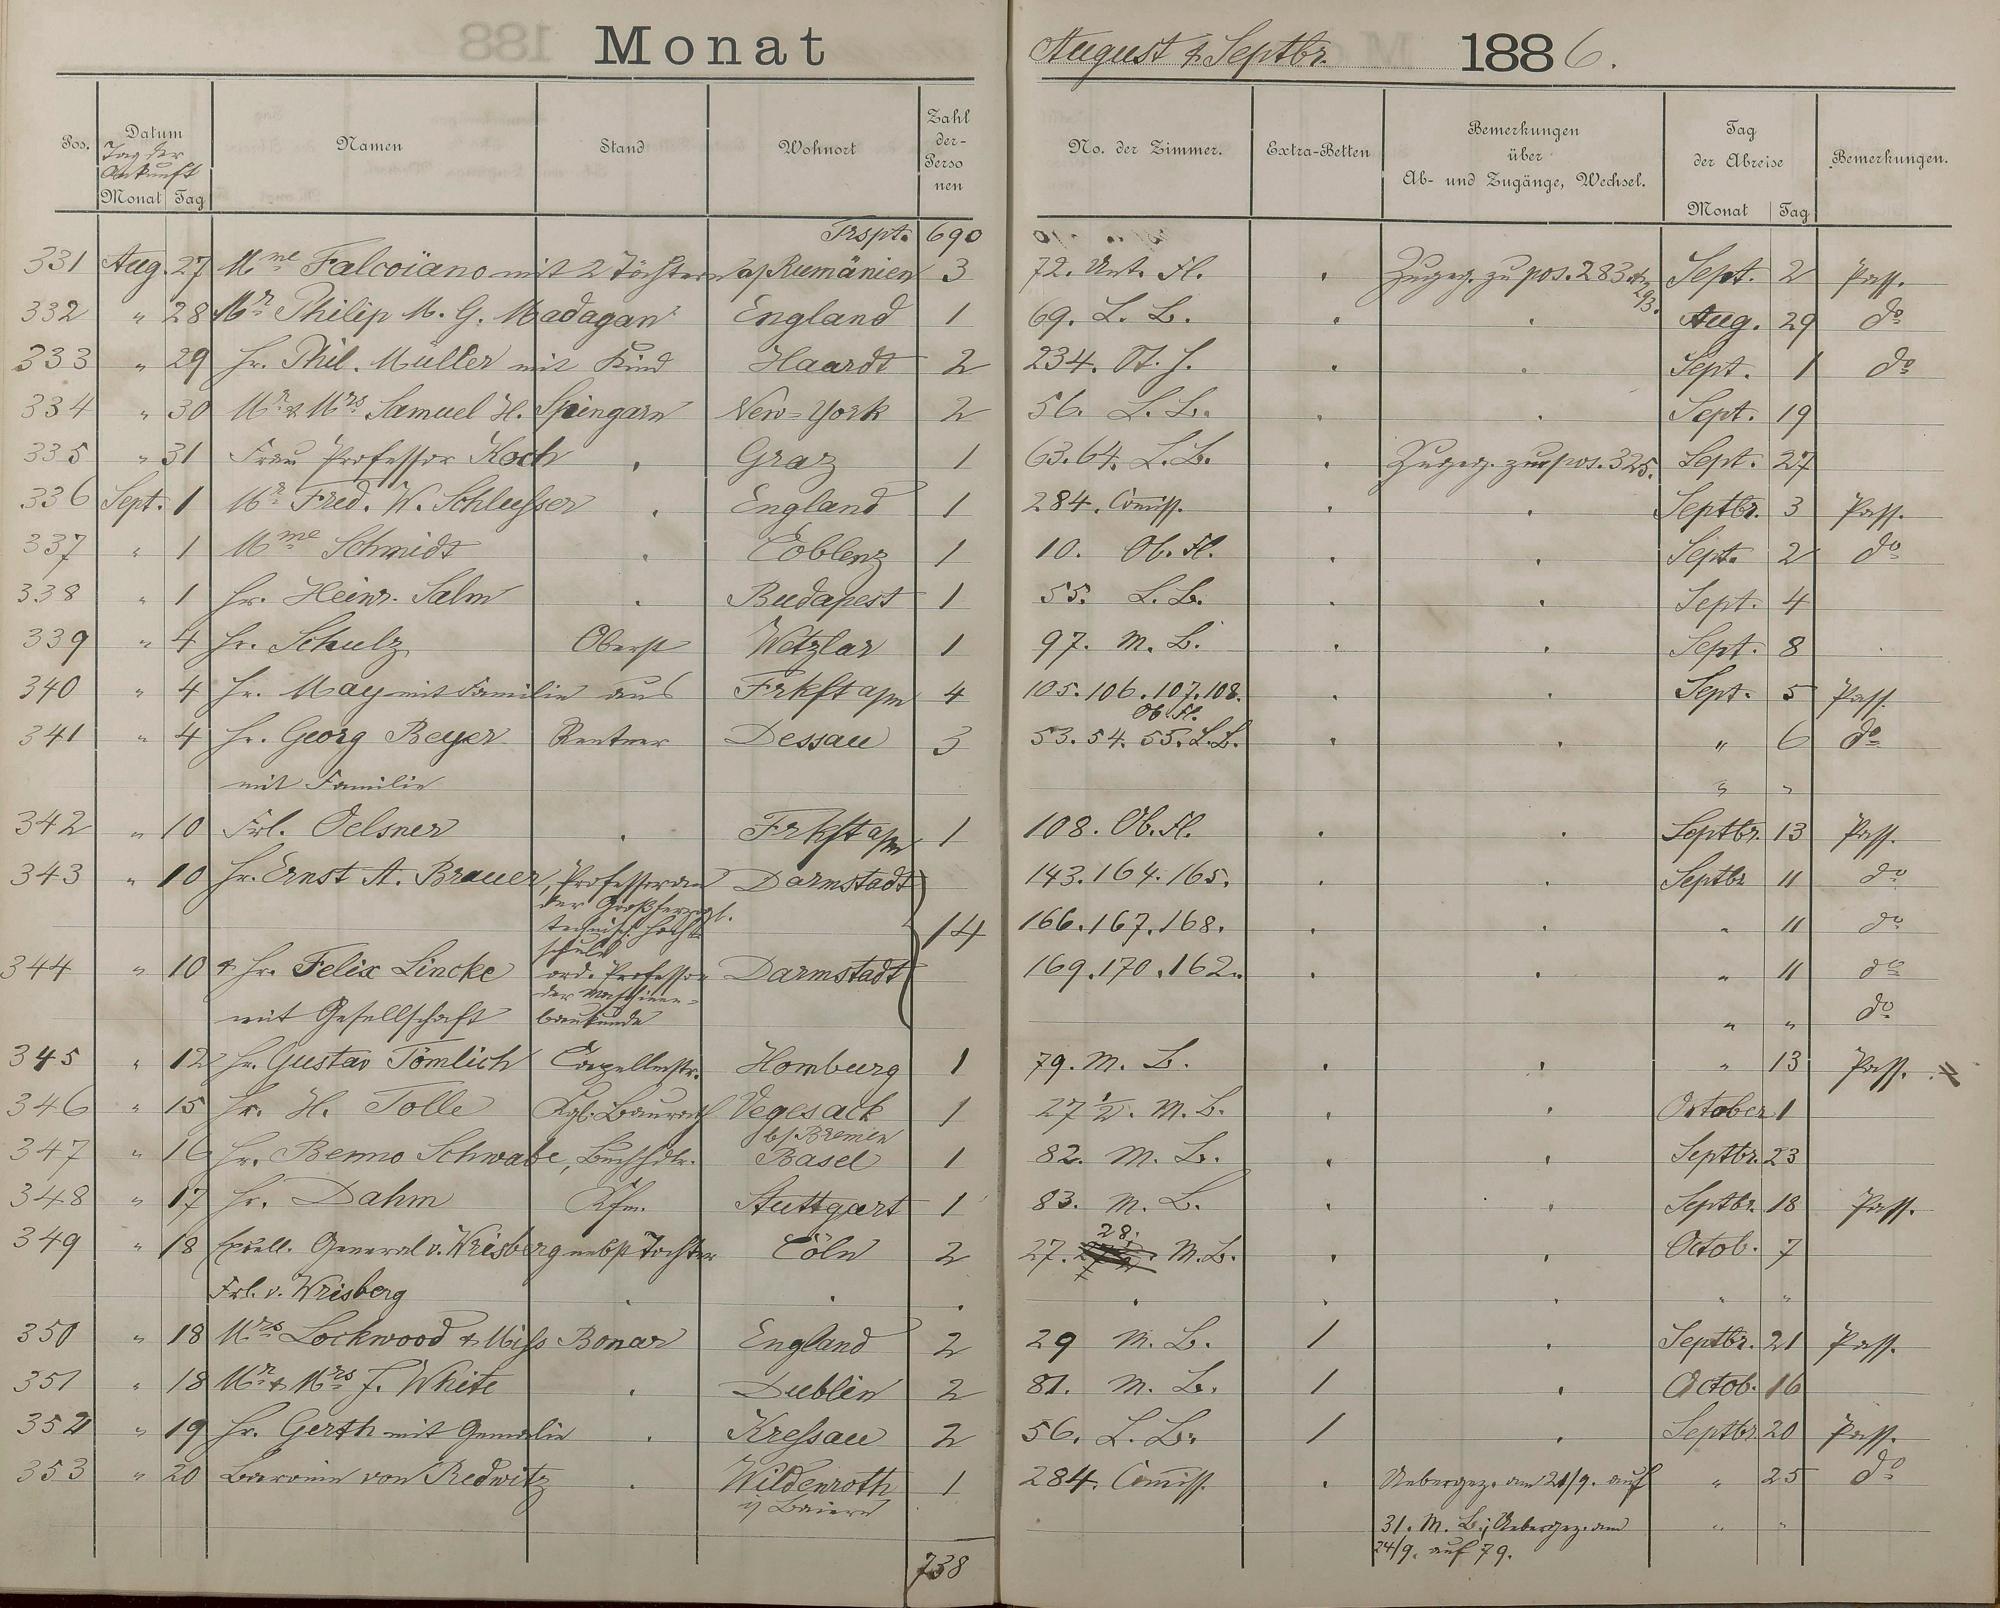 Monat August & Septbr. 1886.
Pos. Datum Namen Stand Wohnort Zahl der Personen No. der Zimmer. Extra-Betten Bemerkungen über Ab- und Zugänge, Wechsel. Tag der Abreise Bemerkungen.
Tag der Ankunft
Monat Tag Monat Tag
Trspt. 690
331 Aug. 27 Mme Falcoïano mit 2 Töchtern a/ Rumänien 3 72. Unt. Fl. Zugeg. zu pos. 283. & 293. Sept. 2 Pass.
332 " 28 Mr Philip M. G. Madagan England 1 69. L. B. Aug. 29 do
333 " 29 Hr. Phil. Müller mit Kind Haardt 2 234. Sept. 1 do
334 " 30 Mr & Mrs Samuel H. Spingarn New-York 2 56. L. B. Sept. 19
335 " 31 Frau Professor Koch Graz 1 63.64. L. B. Zugeg. zur pos. 325. Sept. 27
336 Sept. 1 Mr Fred. W. Schleusser England 1 284. Comiss. Septbr. 3 Pass.
337 " 1 Mme Schmidt Coblenz 1 10. Ob. Fl. Sept. 2 do
338 " 1 Hr. Heinr. Salm Budapest 1 55. L. B. Sept. 4
339 " 4 Hr. Schulz Oberst Wetzlar 1 97. M. B. Sept. 8
340 " 4 Hr. May mit Familie aus Frkft a/m 4 105.106.107.108. Ob. Fl. Sept. 5 Pass.
341 " 4 Hr. Georg Beyer Rentner Dessau 3 53.54.55. L. B. " 6 do
mit Familie " "
342 " 10 Frl. Oelsner Frkft a/m 1 108. Ob. Fl. Septbr. 13 Pass.
343 " 10 Hr. Ernst A. Brauer, Professor an der Großherzogl. technisch. Hochschule Darmstadt 14 143.164.165. Septbr 11 do
166.167.168. " 11 do
344 " 10 & Hr. Felix Lincke ord. Professor der Maschinen- Darmstadt 169.170.162. " 11 do
mit Gesellschaft baukunde " " do
345 " 12 Hr. Gustav Tömlich Capellmstr. Homburg 1 79. M. B. " 13 Pass.
346 " 15 Hr. H. Tolle Kgl. Baurath Vegesack b/. Bremen 1 27 1/2. M. B. October 1
347 " 16 Hr. Benno Schwabe, Buchhdlr. Basel 1 82. M. B. Septbr. 23
348 " 17 Hr. Dahm Kfm. Stuttgart 1 83. M. B. Septbr. 18 Pass.
349 " 18 Excell. General v. Wrisberg nebst Tochter Cöln 2 27. 28. M. B. Octob. 7
Frl. v. Wrisberg " "
350 " 18 Mrs Lockwood & Miss Bonar England 2 29 M. B. 1 Septbr. 21 Pass.
351 " 18 Mr & Mrs J. White Dublin 2 81. M. B. 1 Octob. 16
352 " 19 Hr. Gerth mit Gemalin Kressau 2 56. L. B. 1 Septbr. 20 Pass.
353 " 20 Baronin von Redwitz Wildenroth i/ Baiern 1 284. Comiss. Uebergez. am 21/9. auf " 25 do
31. M. B.; Uebergez. am " "
24/9. auf 79.
738